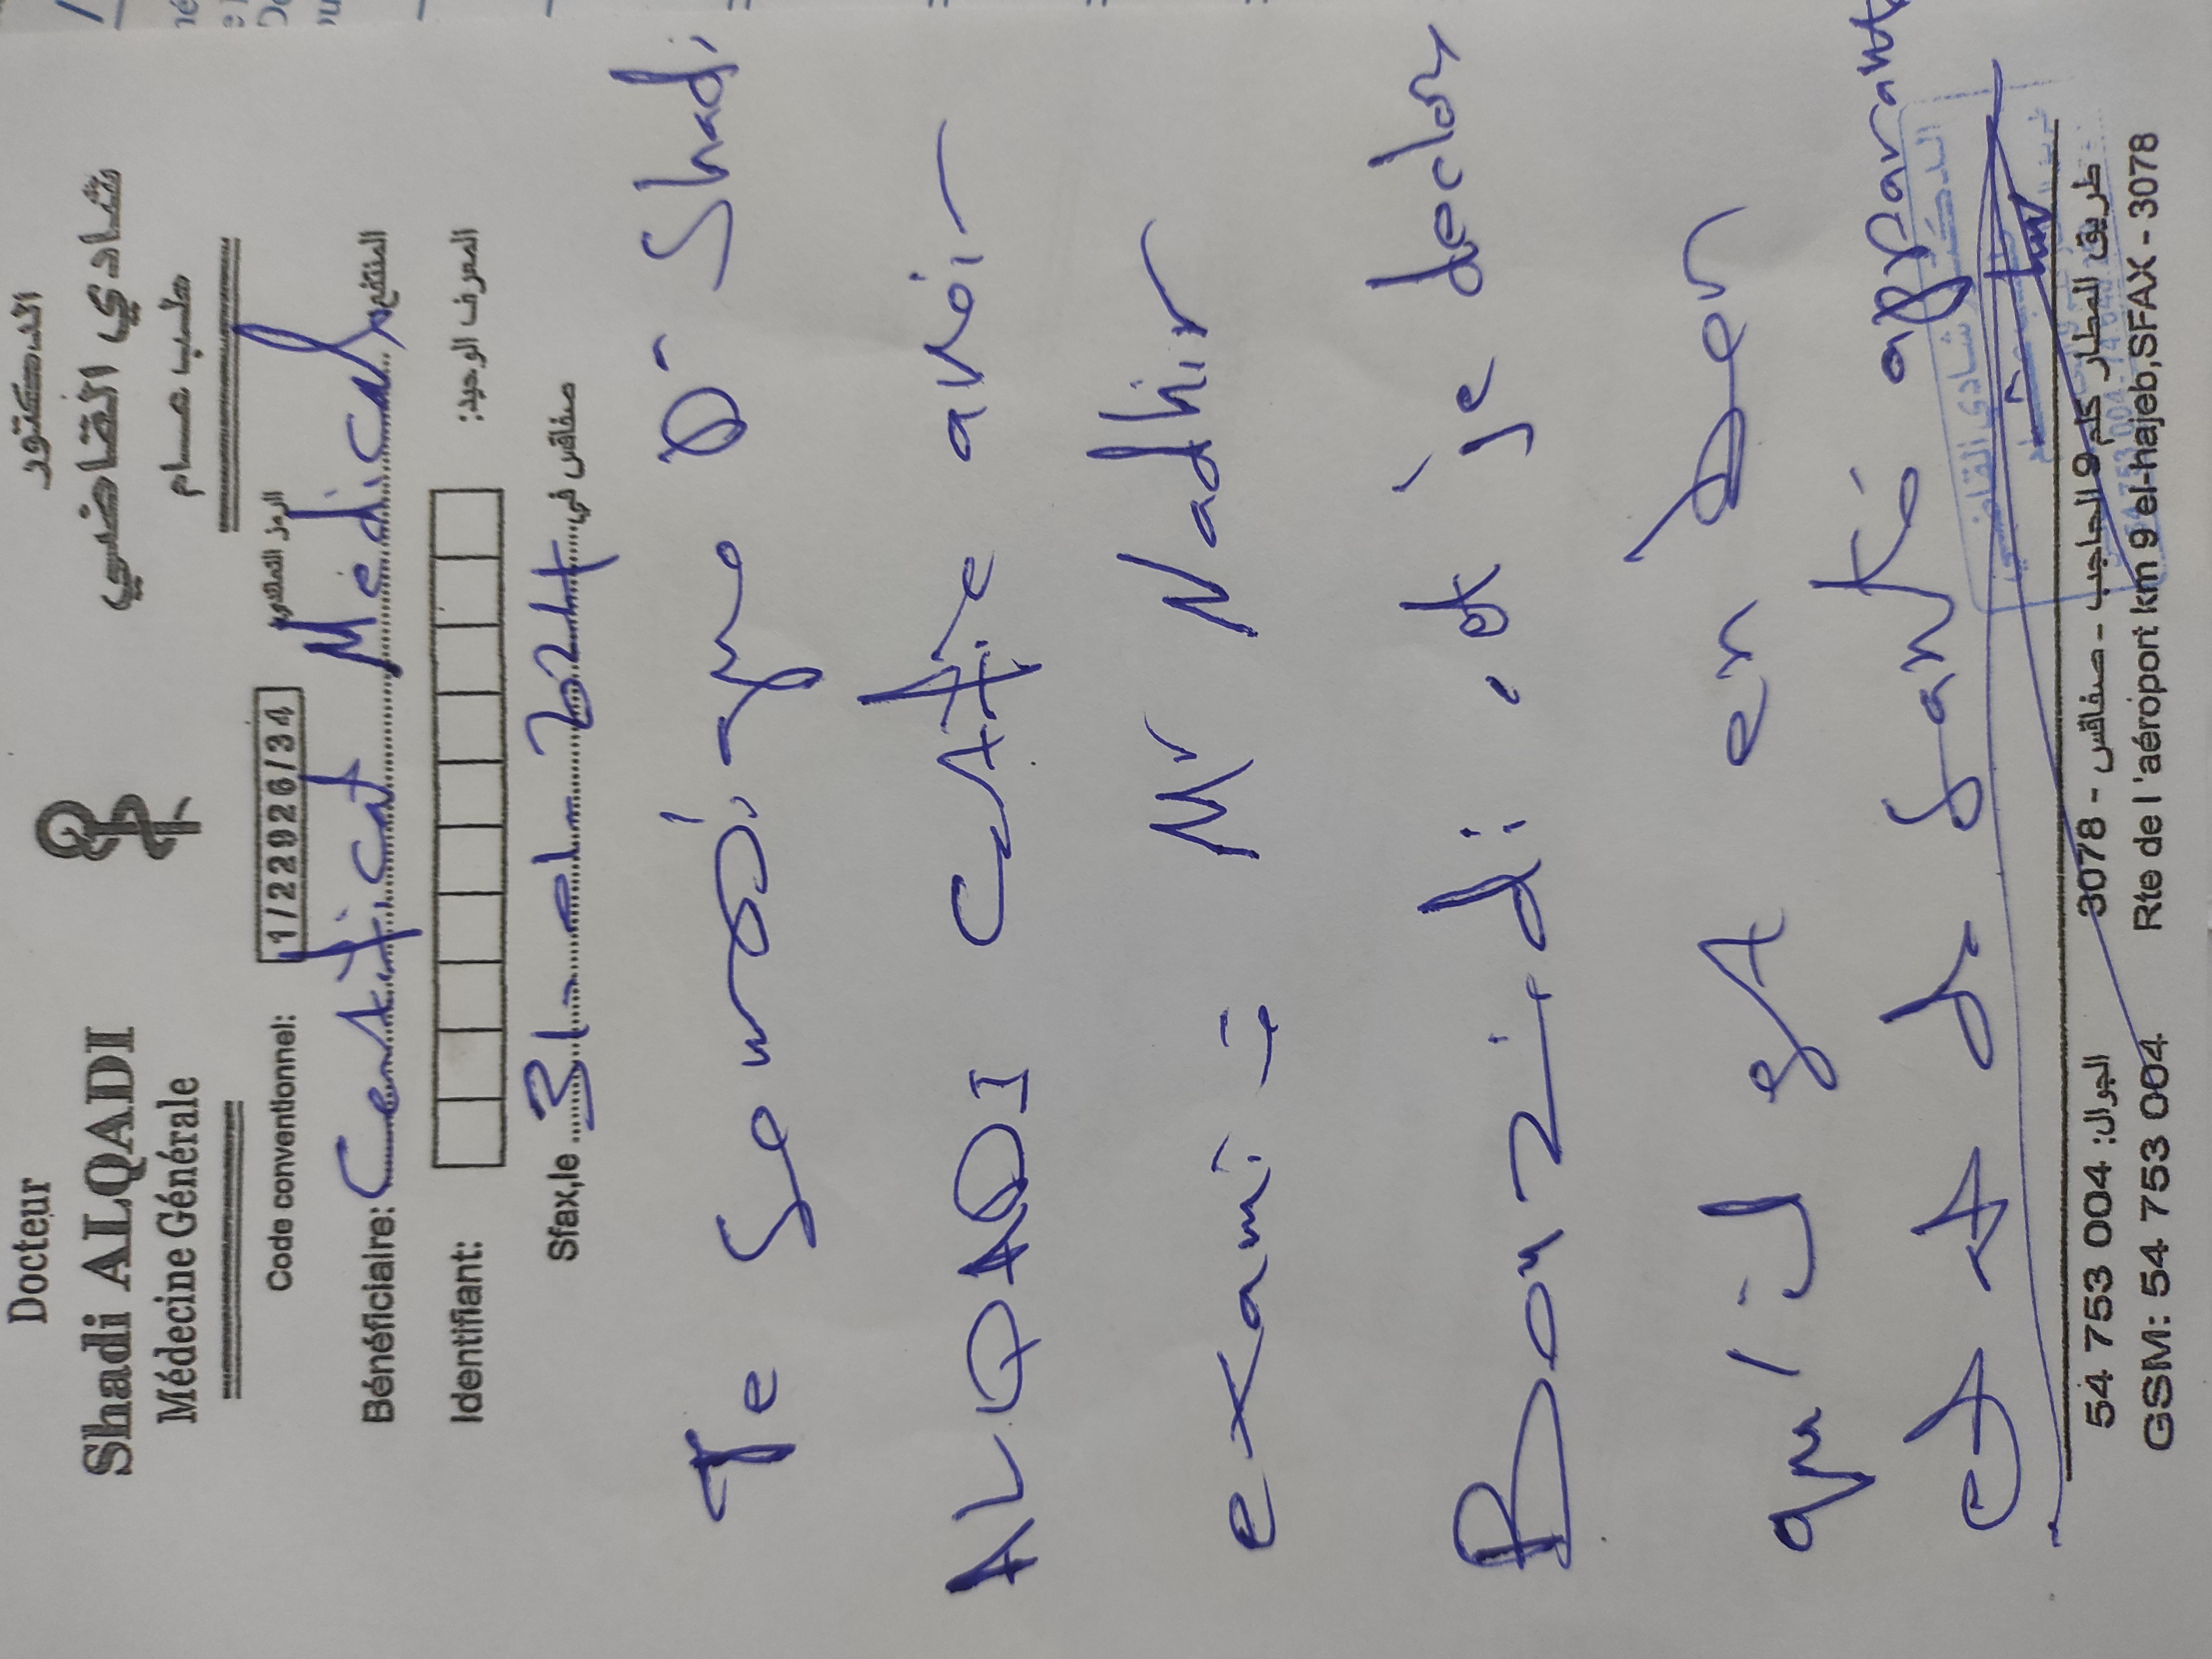 Docteur
Shadi ALQADI
Médecine Générale
الدكتور
شادي القاضي
طب عام
Code conventionnel: 1/22926/34 الرمز التعاقدي
Bénéficiaire: Certificat Médical المنتفع
Identifiant: المعرف الوحيد:
Sfax,le 31 صفاقس في
Je soussigné Dr Shadi
ALQADI certifie avoir
examiné Mr Nadhir
Bouzidi. et je declare
qu'il est en bon
état de santé apparente
الدكتور شادي القاضي
54 753 004 :الجوال 3078 - طريق المطار كلم 9 الحاجب - صفاقس
GSM: 54 753 004 Rte de l'aéroport km 9 el-hajeb,SFAX - 3078